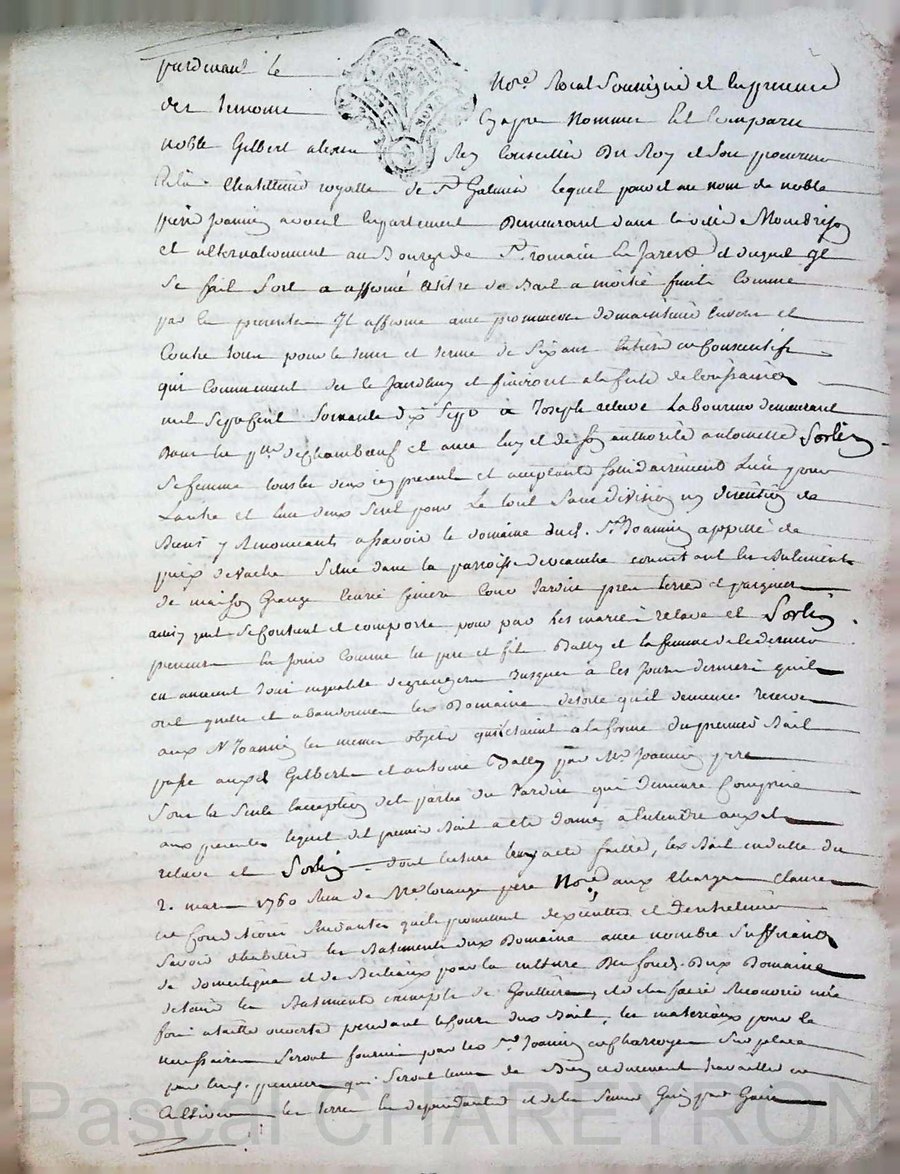 pardevant le Nore Royal Soussigné et en presence
des temoins Cy apres Nommes fut Comparu
noble Gilbert Rey Conseiller Du Roy et Son procureur
En la Chatellenie royalle de St Galmier lequel pour et au nom de noble
pierre Joannin avocat en parlement Demeurant dans la ville de Montbrison
et alternativement au Bourg de St romain en Jarest et duquel Il
Se fait fort a affermé a titre de Bail a moitié fruits Comme
par les presentes Il afferme avec promesse de maintenir envers et
Contre tous pour le tems et terme de Six ans Entiers et Consecutifs
qui Commencent des le Jourdhuy et finiront a la fete de
mil Sept Cent Soixante dix Sept a Joseph releve Laboureur demeurant
Dans la psse de Chambœuf et avec luy et de Son authorité antoinette Sorlin
Sa femme tous les deux icy presents et acceptants Sollidairement L'un pour
L'autre et l'un deux Seul pour Le tout Sans Division ny Discution de
Biens y Renonceants a Sçavoir le domaine dud. Sr Joannin appellé de
Situé dans la parroisse de veauche consistant en Batiments
de maison Grange Ecurie feniere Cour Jardin prés terres et
ainsy quil Se Contient et Comporte pour par les mariés releve et Sorlin
preneurs En Jouir Comme les pere et fils Bally et la femme de ce dernier
en avoient Joui en qualité de grangers Jusques à Ces Jours derniers quils
ont quitté et abandonné led Domaine desorte qu'il demeure reservé
aux Sr Joannin les memes objets qui étoient a la forme du premier Bail
passé auxd Gilbert et antoine Bally par Mr Joannin pere
Sous la Seule Exception de la partie du Jardin qui demeure Comprise
aux presentes lequel dit premier Bail a eté donné a entendre auxdt
releve et Sorlin dont lecture leur a eté faitte, led Bail en datte du
2. mars 1760 Reçu de Me pere Nore aux charges Clauses
et Conditions Suivantes quils promettent d'executer et D'entretenir
Savoir d'habiter les Batiments dudt Domaine avec nombre Suffisant
de domestiques et de Bestiaux pour la culture Des fonds Dudt Domaine
de tenir les Batiments exempts de Gouttieres, et de les faire Recouvrir une
fois a taille ouverte pendant le Cours dudt Bail, les materiaux pour ce
necessaires Seront fournis par led Sr Joannin et Charroyes Sur place
par les preneurs qui Seront tenus de Bien et duement travailler et
Cultiver les terres En dependantes et de les Semer
Pascal CHAREYRON